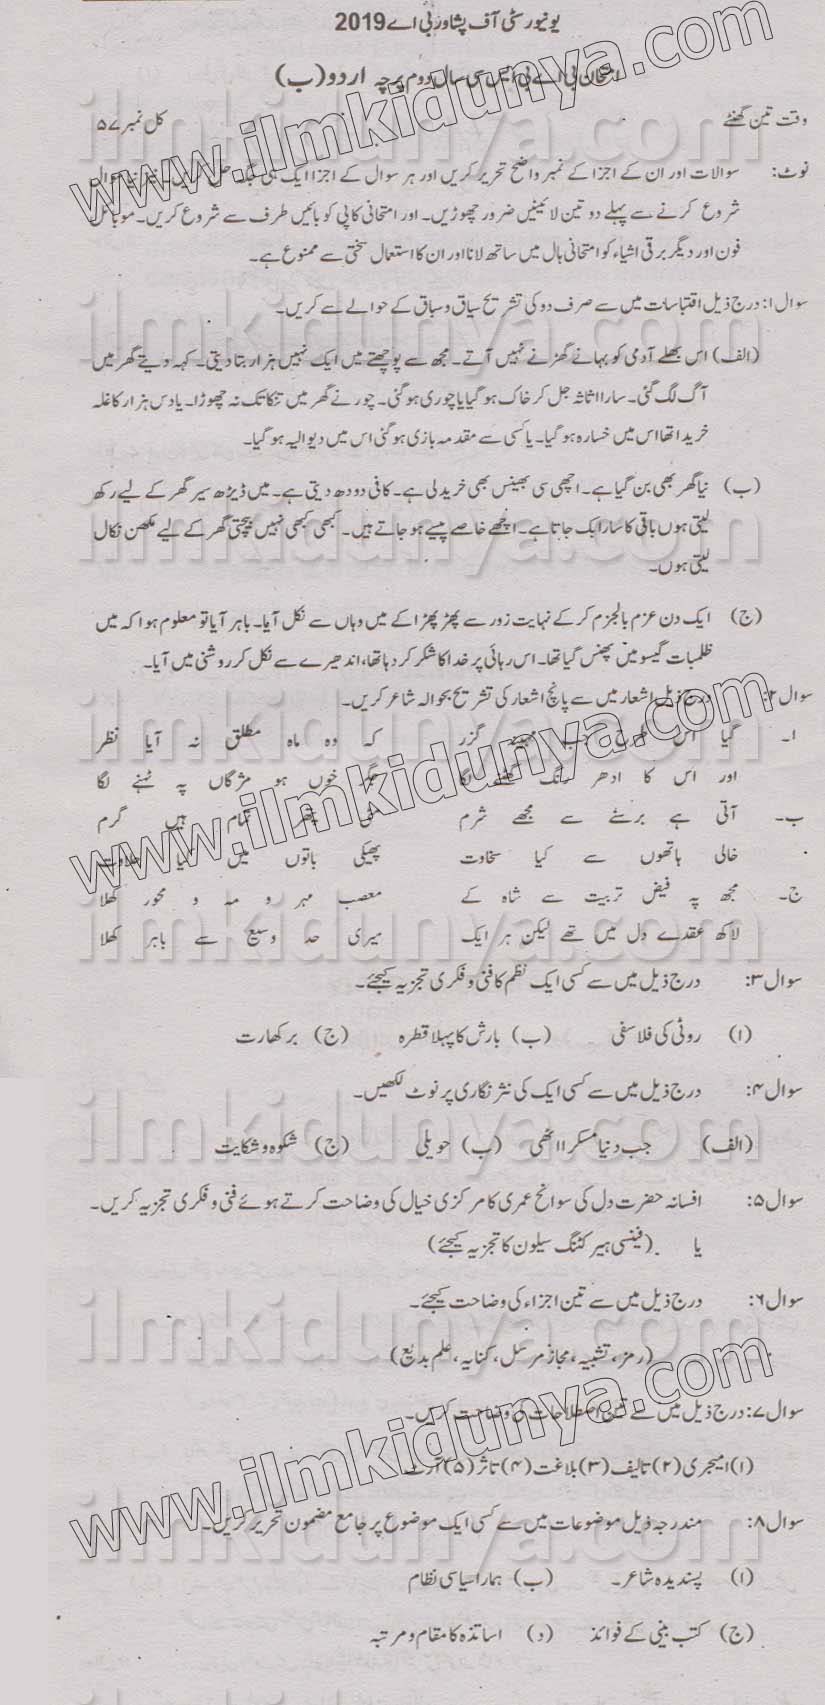 یونیورسٹی آف پشاور بی اے 2019
امتحان بی اے بی ایس سی سال دوم پرچہ اردو (ب)
وقت تین گھنٹے کل نمبر ۵۷
نوٹ: سوالات اور ان کے اجزا کے نمبر واضح تحریر کریں اور ہر سوال کے اجزا ایک ہی جگہ
شروع کرنے سے پہلے دو تین لائینیں ضرور چھوڑیں۔ اور امتحانی کاپی کو بائیں طرف سے شروع کریں۔ موبائل
فون اور دیگر برقی اشیاء کو امتحانی ہال میں ساتھ لانا اور ان کا استعمال سختی سے ممنوع ہے۔
سوال ۱: درج ذیل اقتباسات میں سے صرف دو کی تشریح سیاق و سباق کے حوالے سے کریں۔
(الف) اس بھلے آدمی کو بہانے گھڑنے نہیں آتے۔ مجھ سے پوچھتے میں ایک نہیں ہزار بتا دیتی۔ کہہ دیتے گھر میں
آگ لگ گئی۔ سارا اثاثہ جل کر خاک ہو گیا یا چوری ہو گئی۔ چور نے گھر میں تنکا تک نہ چھوڑا۔ یا دس ہزار کا غلہ
خریدا تھا اس میں خسارہ ہو گیا۔ یا کسی سے مقدمہ بازی ہو گئی اس میں دیوالیہ ہو گیا۔
(ب) نیا گھر بھی بن گیا ہے۔ اچھی سی بھینس بھی خرید لی ہے۔ کافی دودھ دیتی ہے۔ میں ڈیڑھ سیر گھر کے لیے رکھ
لیتی ہوں باقی کا سارا بک جاتا ہے۔ اچھے خاصے پیسے ہو جاتے ہیں۔ کبھی کبھی نہیں بیچتی گھر کے لیے مکھن نکال
لیتی ہوں۔
(ج) ایک دن عزم بالجزم کر کے نہایت زور سے پھڑپھڑا کے میں وہاں سے نکل آیا۔ باہر آیا تو معلوم ہوا کہ میں
ظلمات گیسو میں پھنس گیا تھا۔ اس رہائی پر خدا کا شکر کر رہا تھا، اندھیرے سے نکل کر روشنی میں آیا۔
سوال ۲: درج ذیل اشعار میں سے پانچ اشعار کی تشریح بحوالہ شاعر کریں۔
ا۔ گیا اس طرح جب مہینہ گزر کہ وہ ماہ مطلق نہ آیا نظر
اور اس کا ادھر رنگ گھٹنے لگا جگر خوں ہو مژگاں پہ ٹہنے لگا
ب۔ آتی ہے برسنے سے مجھے شرم تمام ہیں گرم
خالی ہاتھوں سے کیا سخاوت پھیکی باتوں میں کیا حلاوت
ج۔ مجھ پہ فیض تربیت سے شاہ کے معصب مہر و مہ و محور کھلا
لاکھ عقدے دل میں تھے لیکن ہر ایک میری حد وسیع سے باہر کھلا
سوال ۳: درج ذیل میں سے کسی ایک نظم کا فنی و فکری تجزیہ کیجئے۔
(۱) روٹی کی فلاسفی (ب) بارش کا پہلا قطرہ (ج) برکھارت
سوال ۴: درج ذیل میں سے کسی ایک کی نثر نگاری پر نوٹ لکھیں۔
(الف) جب دنیا مسکرا اٹھی (ب) حویلی (ج) شکوہ و شکایت
سوال ۵: افسانہ حضرت دل کی سوانح عمری کا مرکزی خیال کی وضاحت کرتے ہوئے فنی و فکری تجزیہ کریں۔
یا (فینسی ہیر کٹنگ سیلون کا تجزیہ کیجئے)
سوال ۶: درج ذیل میں سے تین اجزاء کی وضاحت کیجئے۔
(رمز، تشبیہ، مجاز مرسل، کنایہ، علم بدیع)
سوال ۷: درج ذیل میں سے تین اصطلاحات کی وضاحت کریں۔
(۱) امیجری (۲) تالیف (۳) بلاغت (۴) تاثر (۵) آرٹ
سوال ۸: مندرجہ ذیل موضوعات میں سے کسی ایک موضوع پر جامع مضمون تحریر کریں۔
(۱) پسندیدہ شاعر۔ (ب) ہمارا سیاسی نظام
(ج) کتب بینی کے فوائد (د) اساتذہ کا مقام و مرتبہ
www.ilmkidunya.com
www.ilmkidunya.com
www.ilmkidunya.com
ilmkidunya.com
ilmkidunya.com
ilmkidunya.com
ilmkidunya.com
ilmkidunya.com
ilmkidunya.com
ilmkidunya.com
ilmkidunya.com